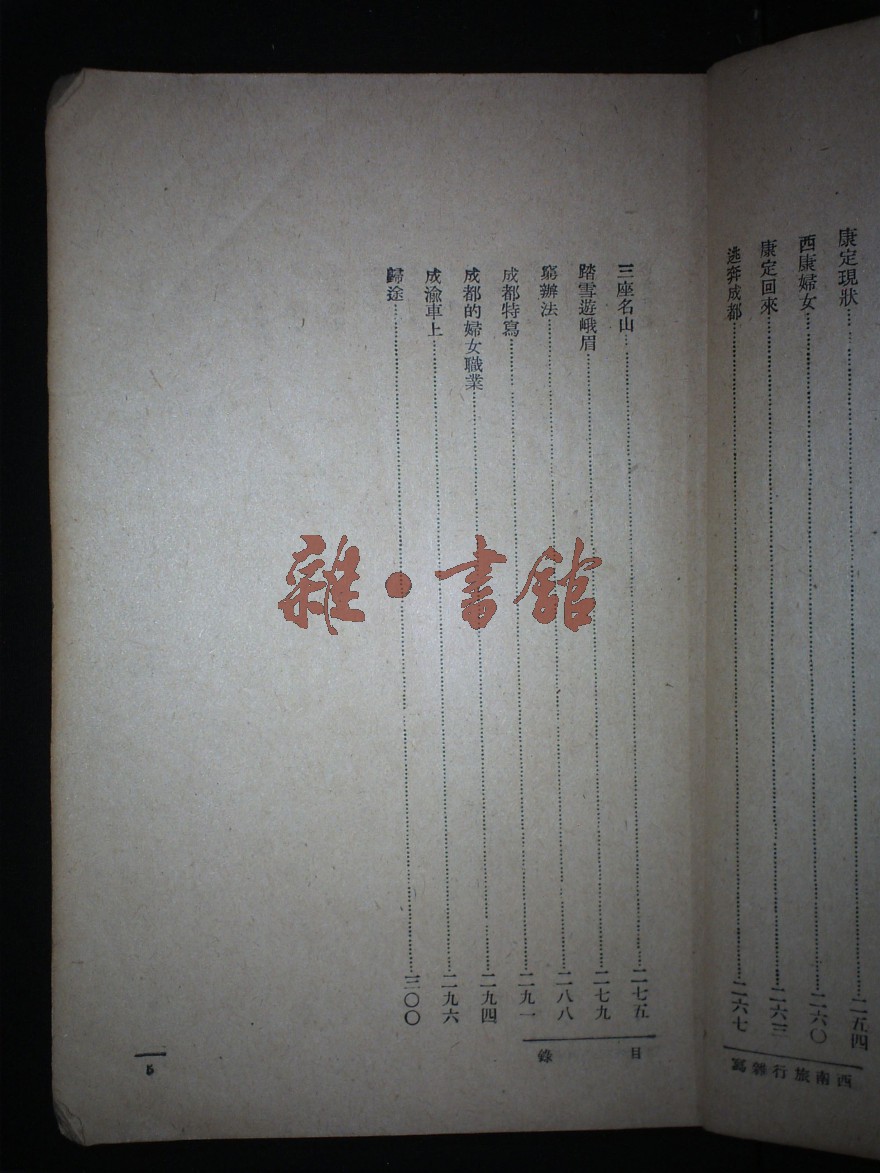 康定現狀……二五四
西康婦女……二六〇
康定回來……二六三
逃奔成都……二六七
西南旅行雜寫
三座名山……二七五
踏雪遊峨眉……二七九
窮辦法……二八八
成都特寫……二九一
成都的婦女職業……二九四
成渝車上……二九六
歸途……三〇〇
目錄
5
雜·書館